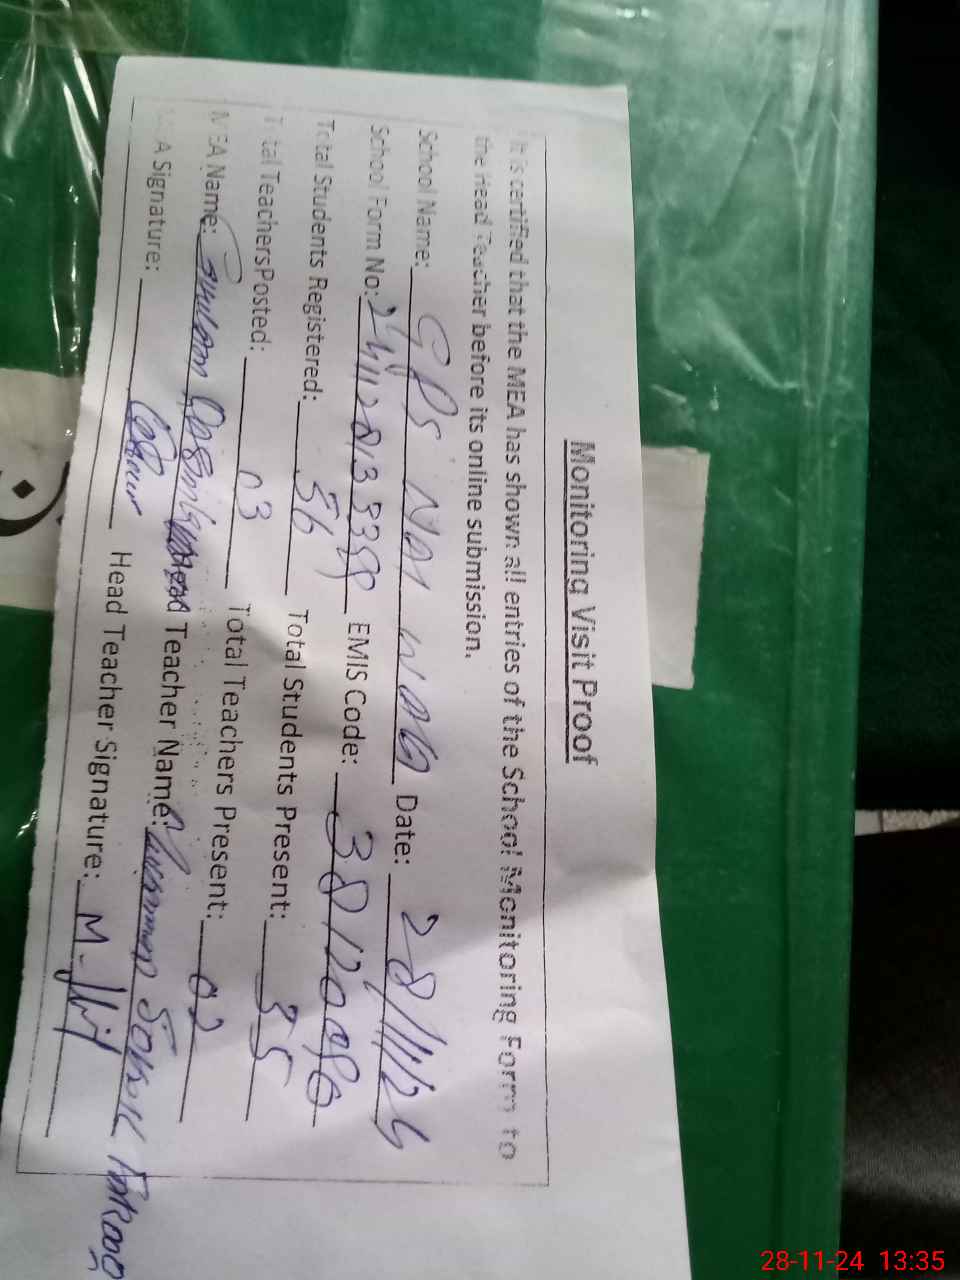 Monitoring Visit Proof
It is certified that the MEA has shown all entries of the School Monitoring Form to
the Head Teacher before its online submission.
School Name: GPS NAI WAG Date: 28/11/24
School Form No: EMIS Code:
Total Students Registered: 56 Total Students Present: 35
Total Teachers Posted: 03 Total Teachers Present: 02
MEA Name: Ghulam Head Teacher Name: Muhammad
MEA Signature: Head Teacher Signature:
28-11-24 13:35